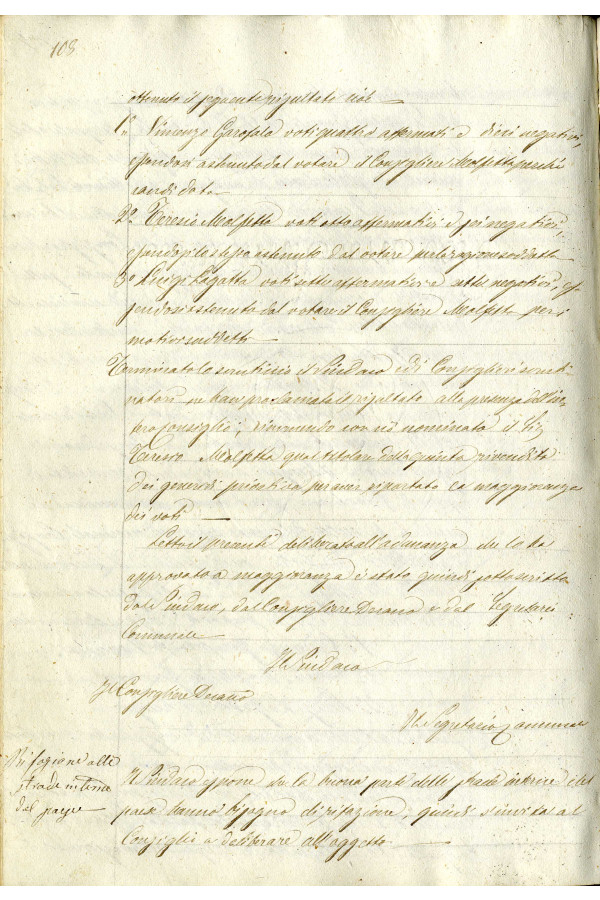 108
ottenuto il seguente risultato cioè
1º Vincenzo Garofalo voti quattro affermati e dieci negativi,
essendosi astenuto dal votare il Consigliere Molfetta perchè
candidato
2º Teresio Molfetta voti otto affermativi e sei negativi,
essendosi lo stesso astenuto dal votare per la ragione suddetta
3º Luigi Lagatta voti sette affermativi e sette negativi, es=
sendosi astenuto dal votare il Consigliere Molfetta per i
motivi suddetti
Terminato lo scrutinio il Sindaco ed i Consiglieri scruti=
natori ne han proclamato il risultato alla presenza dell'in=
tero consiglio; rimanendo con ciò nominato il Sig.
Teresio Molfetta qual titolare della quinta rivendita
dei generi privativa per aver riportato la maggioranza
dei voti
Letto il presente deliberato all'adunanza che lo ha
approvato a maggioranza è stato quindi sottoscritto
dal Sindaco, dal Consigliere Decano e dal Segretario
Comunale
Il Sindaco
Il Consigliere Decano
Il Segretario Comunale
Rifazione alle
strade interne
del paese
Il Sindaco espone che la buona parte delle strade interne del
paese hanno bisogno di rifazione, quindi s'invita al
Consiglio a deliberare all'oggetto